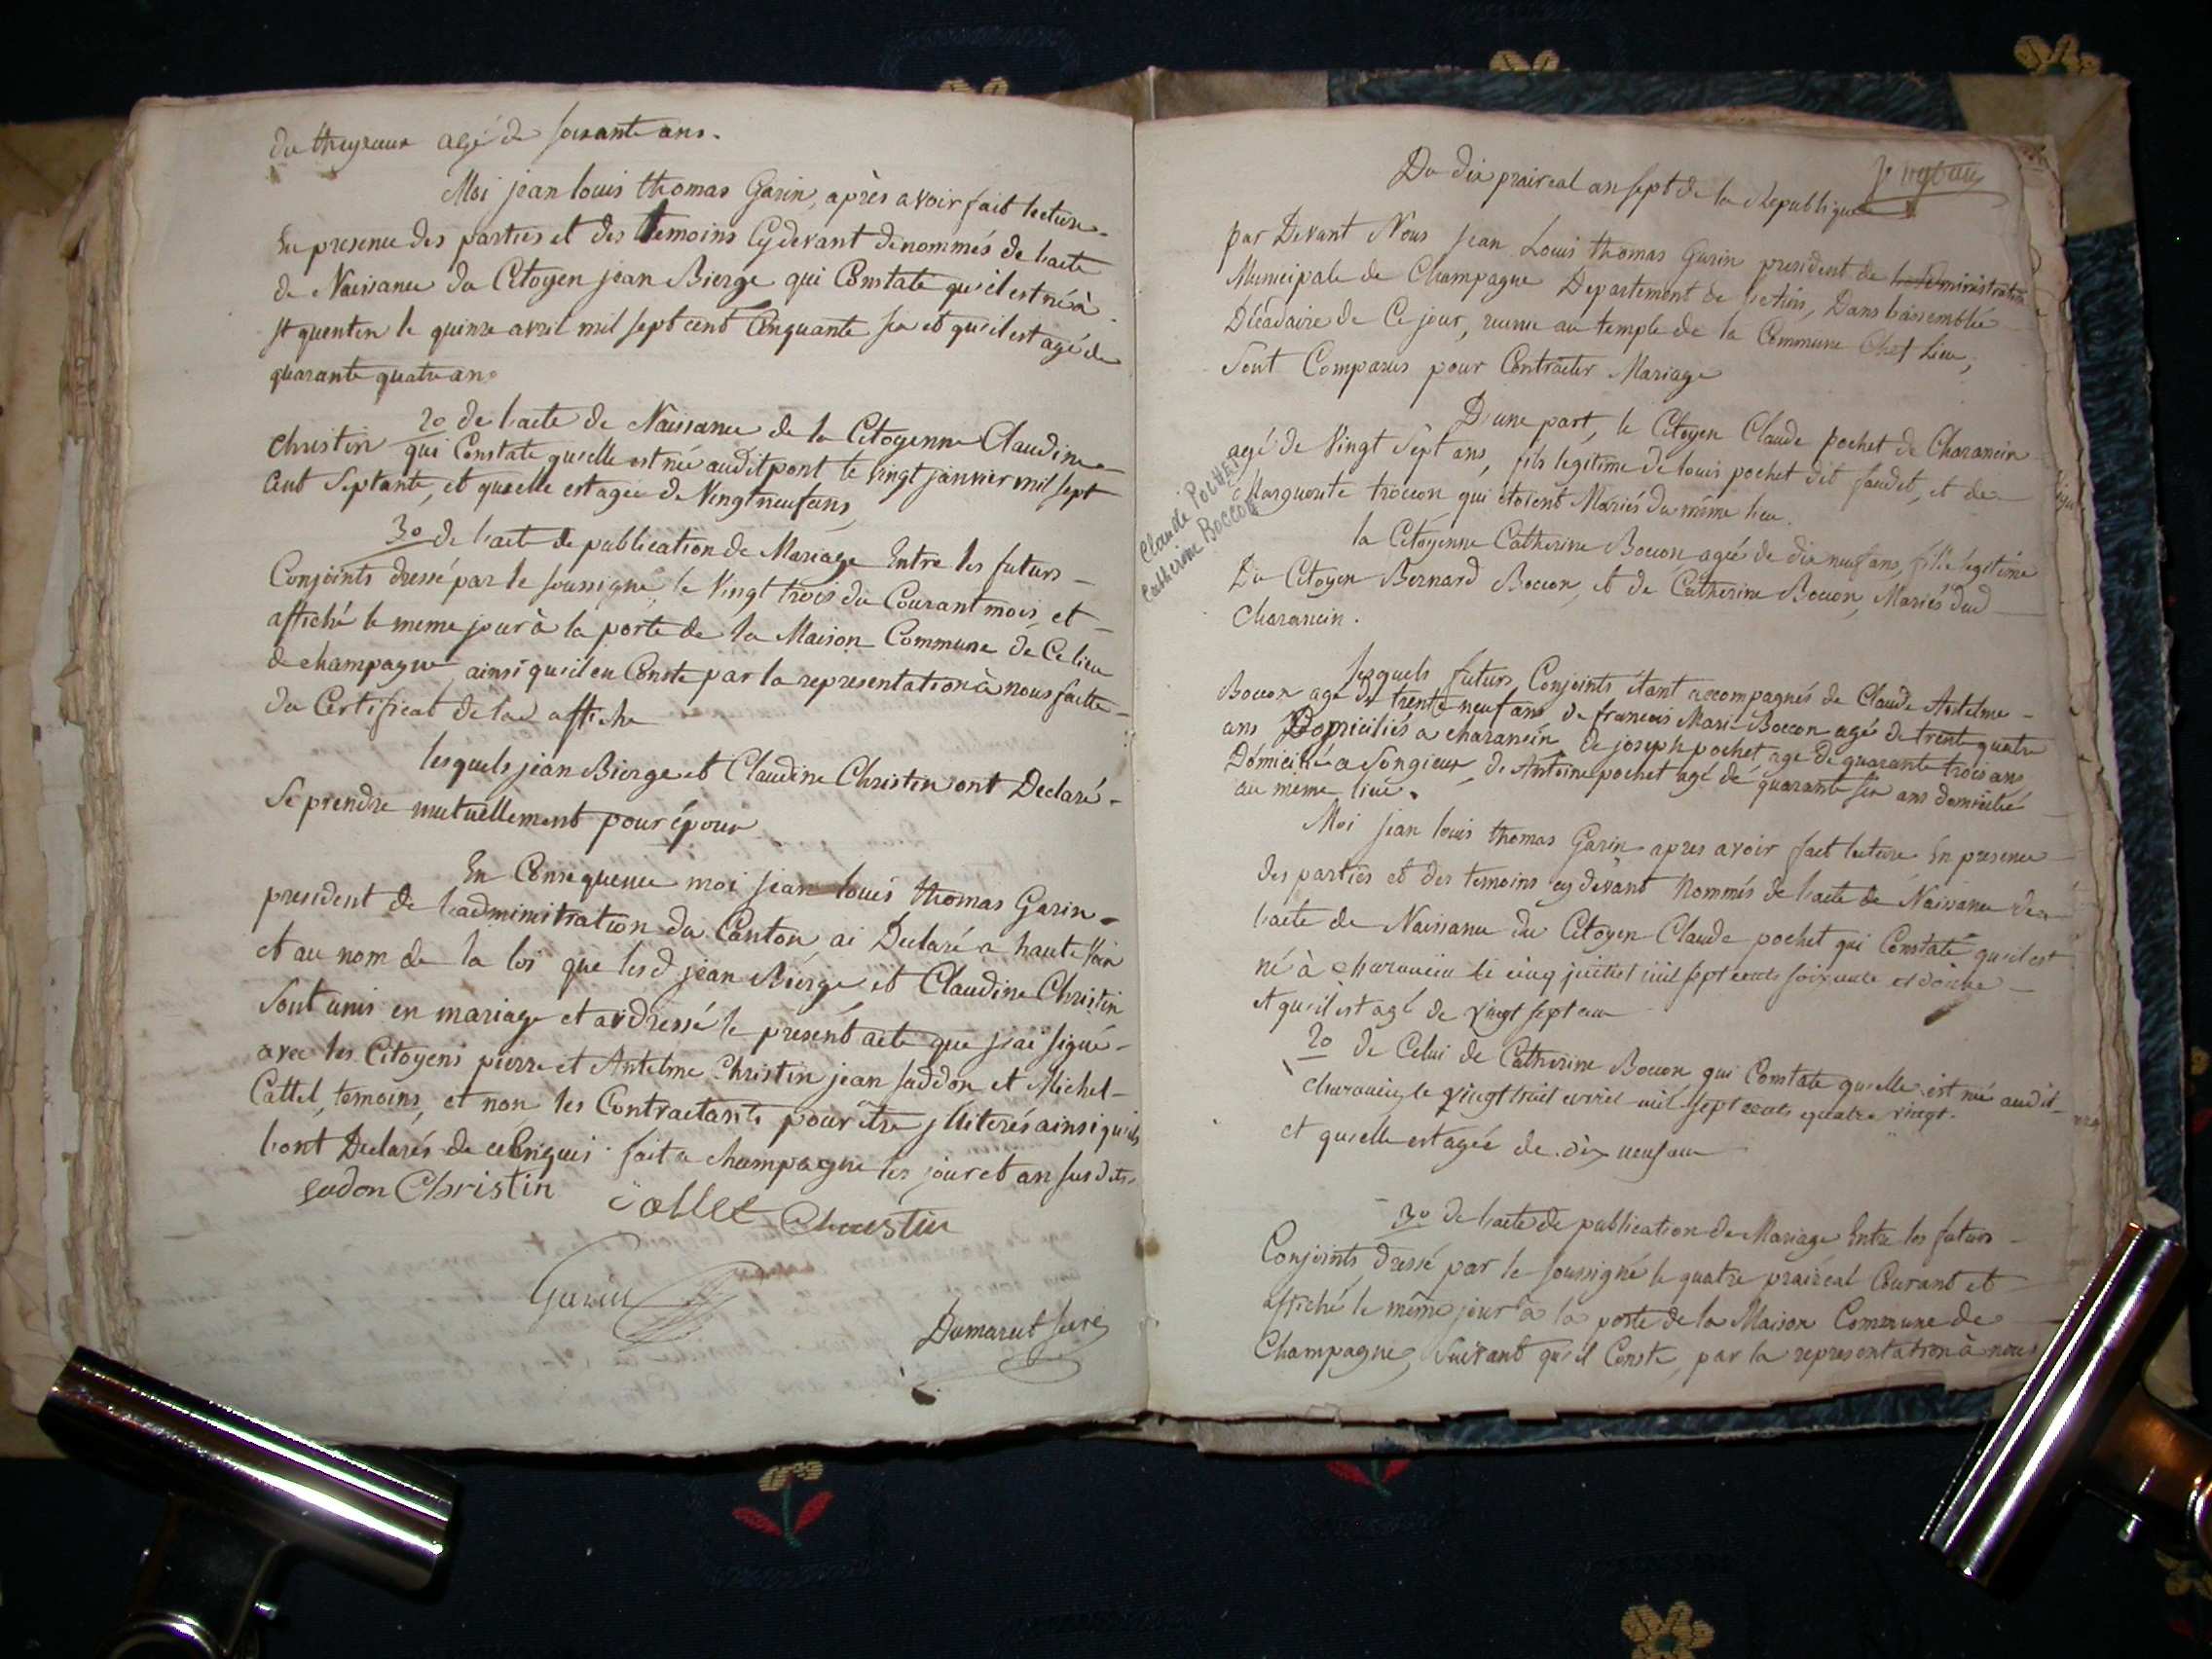 du agé de soixante ans.
Moi jean louis thomas Garin, après avoir fait lecture
En presence des parties et des temoins Cy devant denommés de l'acte
de Naissance du Citoyen jean Bierge qui Constate qu'il est né à
st quentin le quinze avril mil sept cent Cinquante six et qu'il est agé de
quarante quatre ans
2o de l'acte de Naissance de la Citoyenne Claudine
Christin qui Constate qu'elle est née audit pont le vingt janvier mil sept
cent Septante, et qu'elle est agée de Vingt neuf ans,
3o de l'acte de publication de Mariage Entre les futurs
Conjoints dressé par le soussigné le Vingt trois du Courant mois, et
affiché le meme jour à la porte de la Maison Commune de Ce lieu
de champagne, ainsi qu'il en Conste par la representation à nous faitte
du Certificat de lad affiche
lesquels jean Bierge et Claudine Christin ont Declaré
Se prendre mutuellement pour époux
En Consequence moi jean louis thomas Garin
president de l'adminitration du Canton, ai Declaré a haute Voix
et au nom de la loi que lesd jean Bierge et Claudine Christin
Sont unis en mariage et ai dressé le present acte que j'ai signé
avec les Citoyens pierre et Antelme Christin jean saddon et Michel
Cattel, temoins, et non les Contractants pour être jlliterés ainsi qu'ils
l'ont Declarés de ce Enquis. fait a champagne les jour et an susdits.
sadon Christin Collet Christin
Garin
Dumarest secre
Du dix praireal an sept de la Republique
par Devant Nous jean Louis thomas Garin president de l'administration
Municipale de Champagne Departement de l'Ain, Dans l'assemblée
Décadaire de Ce jour, reunie au temple de la Commune Chef Lieu,
Sont Comparus pour Contracter Mariage
D'une part, le Citoyen Claude pochet de Charancin
agé de Vingt Sept ans, fils legitime de louis pochet dit faudet, et de
Marguerite troccon qui étoient Mariés du même lieu.
Claude POCHET
Catherine BOCCON
la Citoyenne Catherine Boccon agée de dix neuf ans, fille legitime
Du Citoyen Bernard Boccon, et de Catherine Boccon, Mariés dud
Charancin.
lesquels futurs Conjoints étant accompagnés de Claude Antelme
Boccon agé de trente neuf ans, de francois Marie Boccon agé de trente quatre
ans Domiciliés a charancin, de joseph pochet agé de quarante trois ans
Domicilié a Songieux, de Antoine pochet agé de quarante six ans domicilié
au même lieu.
Moi jean louis thomas Garin apres avoir fait lecture En presence
des parties et des temoins cy devant Nommés de l'acte de Naissance de
l'acte de Naissance du Citoyen Claude pochet qui Constate qu'il est
né à charancin le cinq juillet mil sept cents soixante et douze
et qu'il est agé de vingt sept ans
2o de Celui de Catherine Boccon qui Constate qu'elle est née audit
charancin le vingt huit avril mil sept cents quatre vingt.
et qu'elle est agée de dix neuf ans
3o de l'acte de publication de Mariage Entre les futurs
Conjoints, dressé par le soussigné le quatre praireal Courant et
affiché le même jour a la porte de la Maison Commune de
Champagne, Suivant qu'il Conste, par la representation à nous